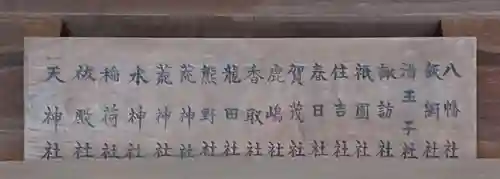 八幡社
飯綱社
酒玉子社
諏訪社
祇園社
住吉社
春日社
賀茂社
鹿嶋社
香取社
龍田社
熊野社
蔸神社
蔸神社
水神社
稲荷社
祓殿社
天神社